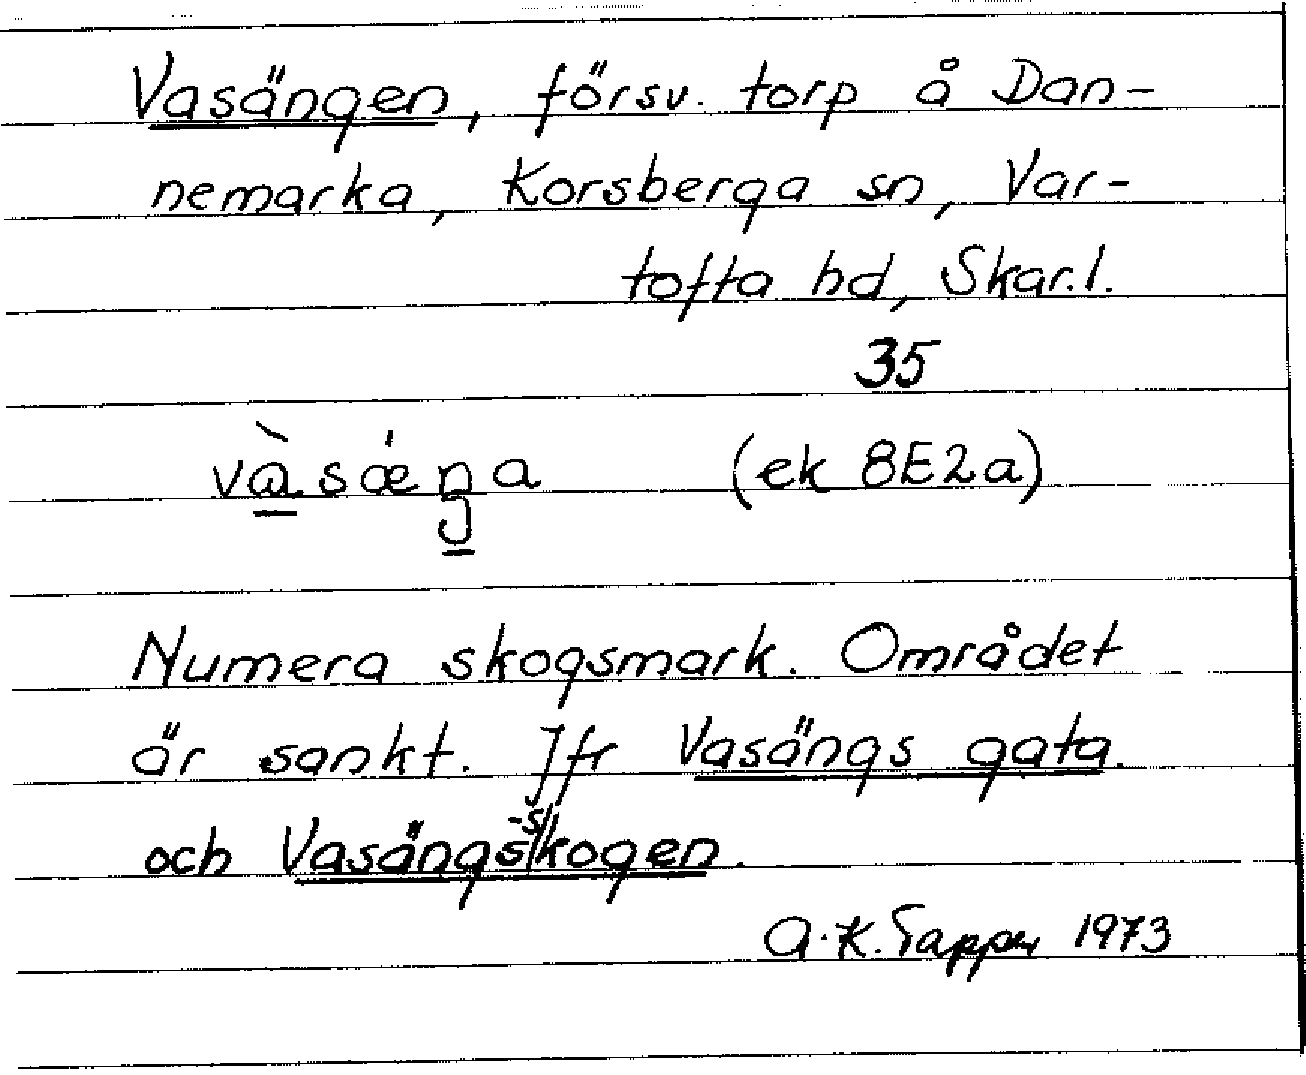 Vasängen, försv. torp å Dan-
nemarka, Korsberga sn, Var-
tofta hd, Skar.l.
35
(ek 8E2a)
Numera skogsmark. Området
är sankt. Jfr Vasängs gata.
och Vasängsskogen.
A.K. 1973